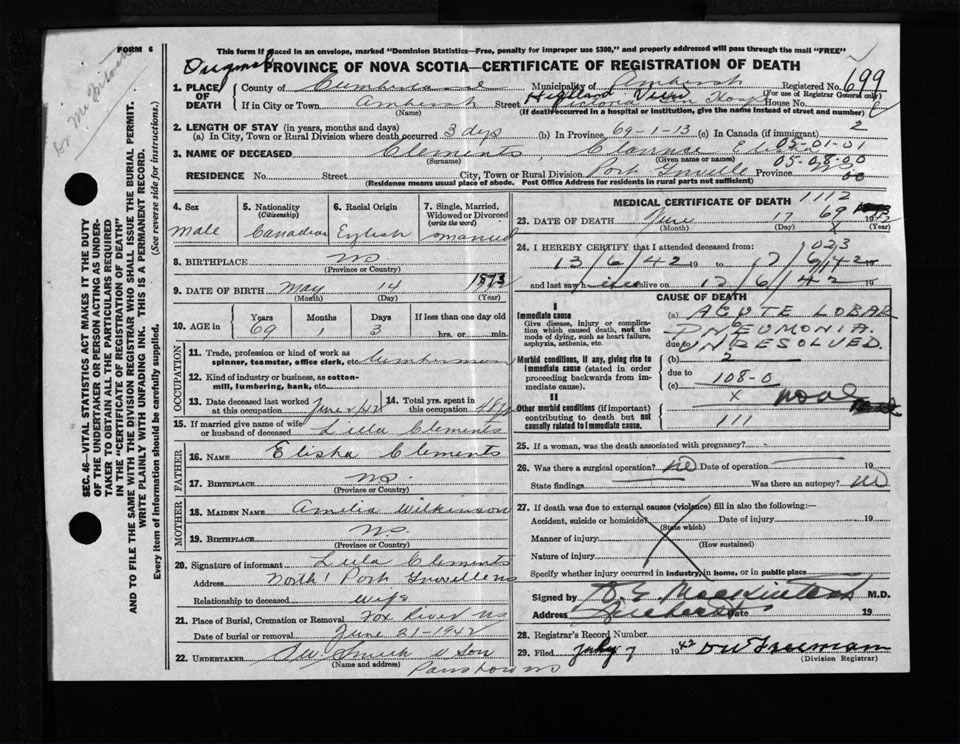 FORM 6
This form if placed in an envelope, marked "Dominion Statistics—Free, penalty for improper use $300," and properly addressed will pass through the mail "FREE"
PROVINCE OF NOVA SCOTIA—CERTIFICATE OF REGISTRATION OF DEATH
1. PLACE OF DEATH
County of Cumberland Municipality of Amherst Registered No. 699
(For use of Registrar General only)
If in City or Town Amherst Street Highland View House No.
(Name) (If death occurred in a hospital or institution, give the name instead of street and number)
2. LENGTH OF STAY (in years, months and days)
(a) In City, Town or Rural Division where death occurred 3 dys (b) In Province 69-1-13 (c) In Canada (if immigrant) 2
05-01-01
3. NAME OF DECEASED Clements, Clarence
(Surname) (Given name or names)
05-08-00
RESIDENCE No. Street City, Town or Rural Division Port Greville Province
(Residence means usual place of abode. Post Office Address for residents in rural parts not sufficient)
4. Sex
Male
5. Nationality
(Citizenship)
Canadian
6. Racial Origin
English
7. Single, Married, Widowed or Divorced
(write the word)
Married
8. BIRTHPLACE NS
(Province or Country)
9. DATE OF BIRTH May 14 1873
(Month) (Day) (Year)
10. AGE in
Years Months Days If less than one day old
69 1 3 hrs. or min.
OCCUPATION
11. Trade, profession or kind of work as
spinner, teamster, office clerk, etc. Lumberman
12. Kind of industry or business, as cotton-
mill, lumbering, bank, etc.
13. Date deceased last worked at this occupation June 42
14. Total yrs. spent in this occupation 48 yrs
15. If married give name of wife or husband of deceased Lilla Clements
FATHER
16. NAME Elisha Clements
17. BIRTHPLACE NS.
(Province or Country)
MOTHER
18. MAIDEN NAME Amelia Wilkinson
19. BIRTHPLACE NS
(Province or Country)
20. Signature of informant Lilla Clements
Address North Port Greville NS
Relationship to deceased wife
21. Place of Burial, Cremation or Removal Fox River NS
Date of burial or removal June 21-1942
22. UNDERTAKER Smith & Son
(Name and address) Parrsboro NS
MEDICAL CERTIFICATE OF DEATH 1112
23. DATE OF DEATH June 17
(Month) (Day) (Year)
24. I HEREBY CERTIFY that I attended deceased from:
023
13/6/42 19 to 17/6/42 19
and last saw him alive on 17/6/42 19
CAUSE OF DEATH
I
Immediate cause
Give disease, injury or complica-
tion which caused death, not the
mode of dying, such as heart failure,
asphyxia, asthenia, etc.
(a) ACUTE LOBAR
PNEUMONIA.
due to UNRESOLVED
Morbid conditions, if any, giving rise to
immediate cause (stated in order
proceeding backwards from im-
mediate cause).
(b) 2
due to
108-0
(c) x
II
Other morbid conditions (if important)
contributing to death but not
causally related to immediate cause.
111
25. If a woman, was the death associated with pregnancy?
26. Was there a surgical operation? NO Date of operation 19
State findings Was there an autopsy? NO
27. If death was due to external causes (violence) fill in also the following:—
Accident, suicide or homicide? Date of injury 19
(State which)
Manner of injury
(How sustained)
Nature of injury
Specify whether injury occurred in industry, in home, or in public place
Signed by D E Mackintosh M.D.
Address Amherst Date 19
28. Registrar's Record Number
29. Filed July 7 1942 Freeman
(Division Registrar)
SEC. 46—VITAL STATISTICS ACT MAKES IT THE DUTY
OF THE UNDERTAKER OR PERSON ACTING AS UNDER-
TAKER TO OBTAIN ALL THE PARTICULARS REQUIRED
IN THE "CERTIFICATE OF REGISTRATION OF DEATH"
AND TO FILE THE SAME WITH THE DIVISION REGISTRAR WHO SHALL ISSUE THE BURIAL PERMIT.
WRITE PLAINLY WITH UNFADING INK. THIS IS A PERMANENT RECORD.
Every item of information should be carefully supplied. (See reverse side for instructions.)